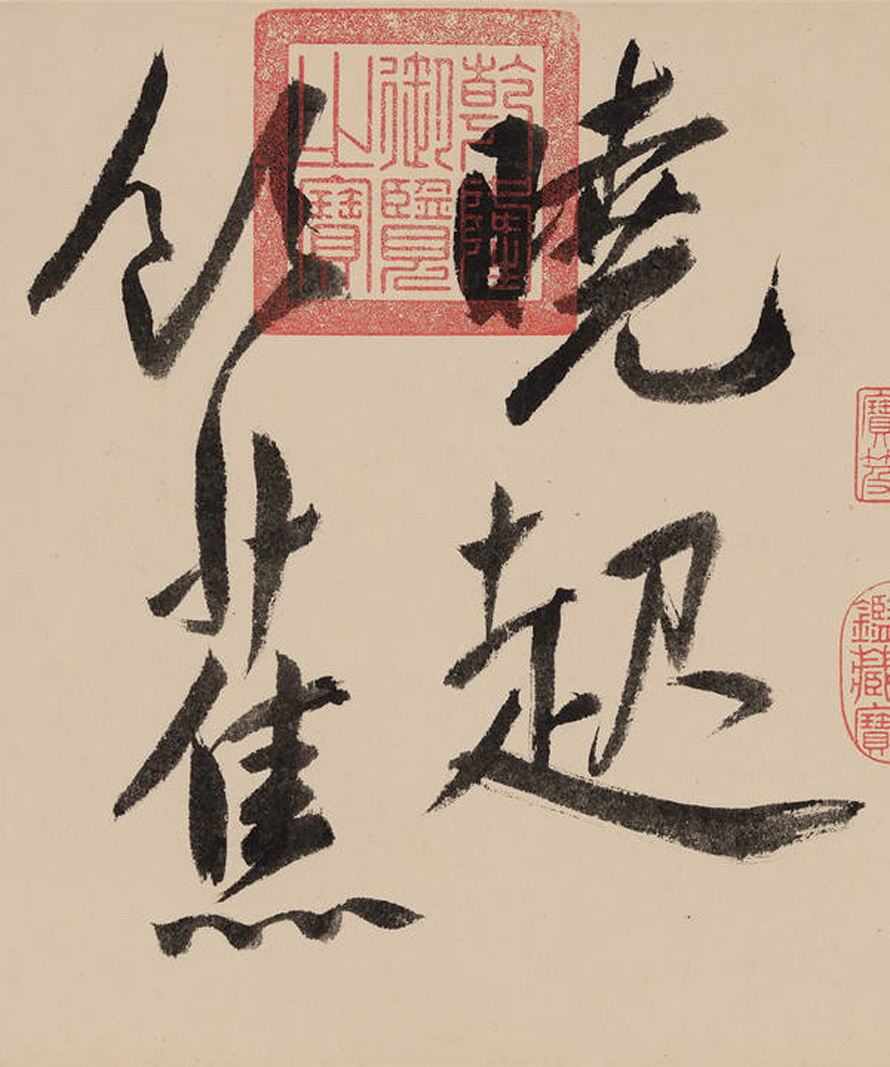 寶笈
鑑藏寶
曉起
似蕉
乾隆
御覽
之寶